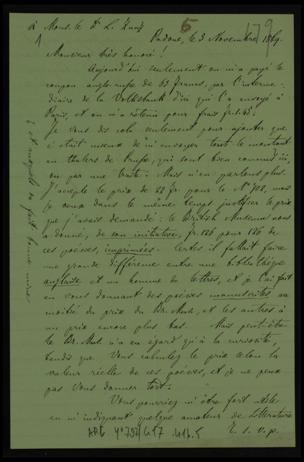 à Mons. le Dr L. Zunz
5
179
1
Padoue, le 3 Novembre 1869.
Monsieur très honoré!
Aujourd'hui seulement on m'a payé le
coupon anglo-russe de 63 francs, par l'intermé-
diaire de la Volksbank d'ici qui l'a envoyé à
Paris, et on m'a retenu pour frais
Je vous dis cela seulement pour ajouter que
c'était mieux de m'envoyer tout le montant
en thalers de Prusse, qui sont bien connus ici,
ou par une traite. Mais n'en parlons plus.
J'accepte le prix de 22 fr. pour le No
je veux dans le même temps justifier le prix
que j'avais demandé: le British Museum nous
a donné, de son initiative, fr. 126 pour 126 de
ces poésies, imprimées. Certes il fallait faire
une grande différence entre une bibliothèque
anglaise et un homme de lettres, et je l'ai fait
en vous donnant des poésies manuscrites au
moitié du prix du Br. Mus. et les autres à
un prix encore plus bas. Mais peut-être
le Br. Mus. n'a eu égard qu'à la curiosité,
tandis que Vous calculez le prix selon la
valeur réelle de ces poésies, et je ne peux
pas Vous donner tort.
Vous pourriez m'être fort utile
en m'indiquant quelque amateur de Littérature
T. s. v. p.
ARC 4° 792/G17